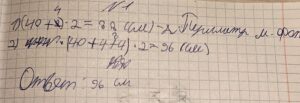 №1
1) (40+4)·2=88 (см) – Периметр м. фот
2) (40+4+4)·2=96 (см)
Ответ: 96 см